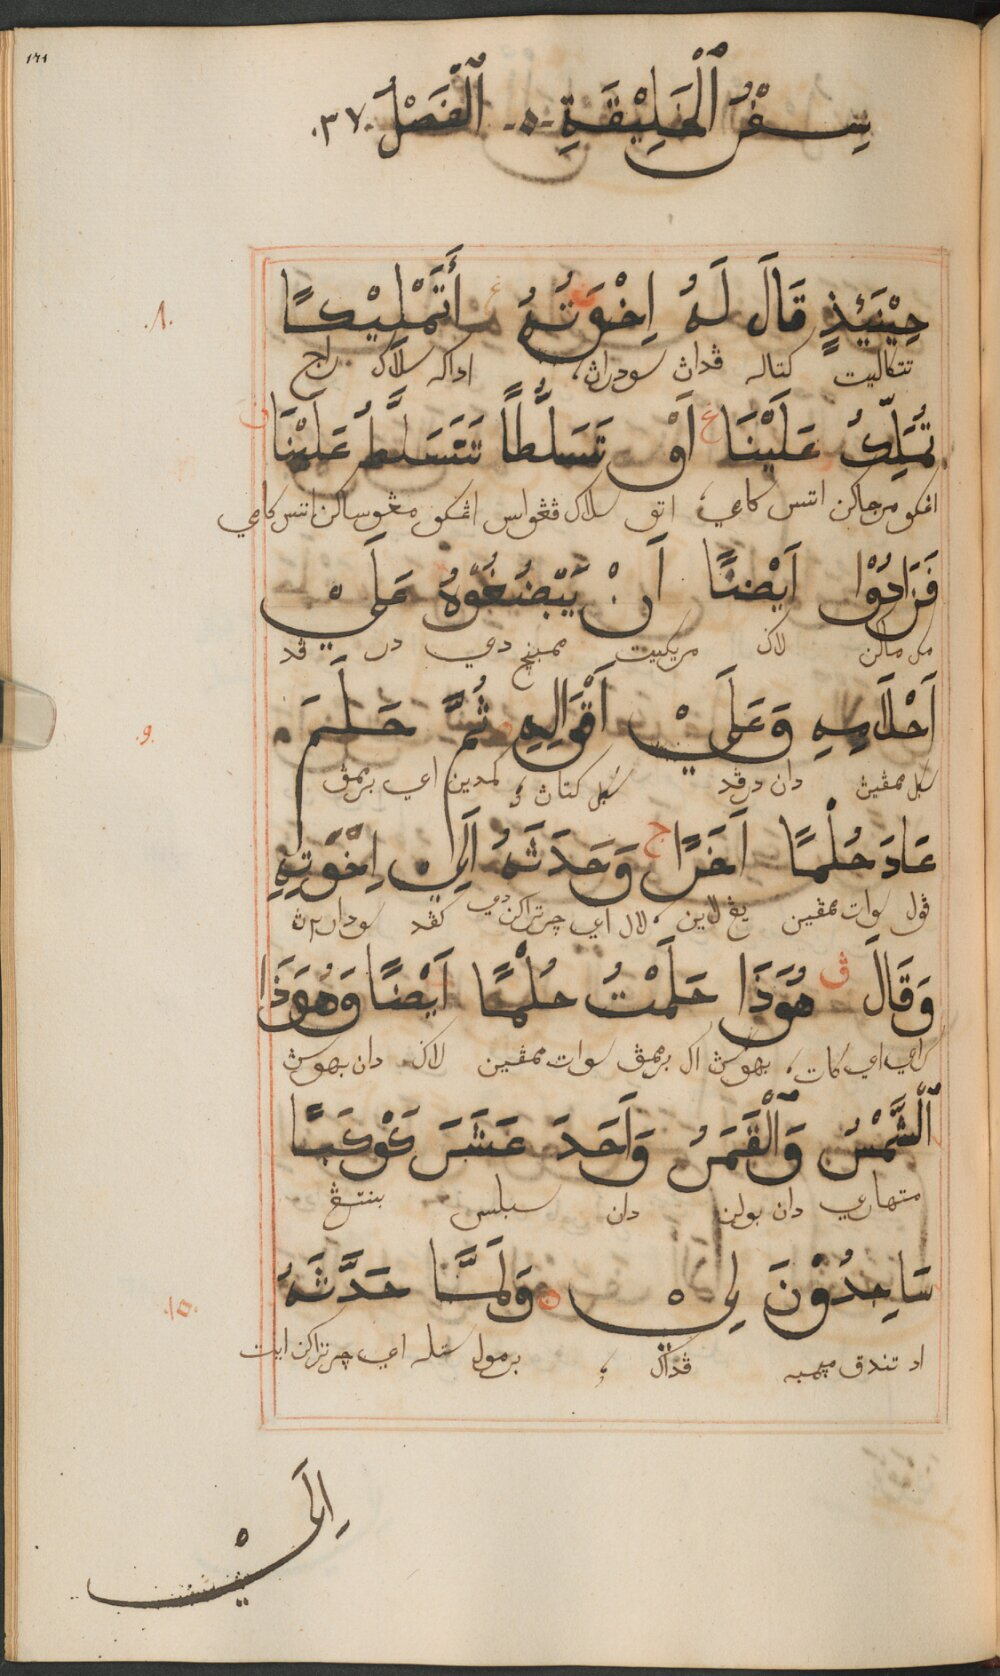 ١٦١
سِفْرُ ٱلْخَلِيْقَةِ ٱلْفَصْلُ ٣٧
٨
حِيْنَئِذٍ قَالَ لَهُ اِخْوَتُهُ أَتَمْلِيْكًا
تتكاليت كتاله ڤداڽ سودراڽ اداكه سلاكو راج
تُمَلِّكُ عَلَيْنَا اَوْ تَسَلُّطًا تَتَسَلَّطُ عَلَيْنَا
اڠكو مرجاكن اتس كامي اتو سلاكو ڤڠواس اڠكو مڠوساكن اتس كامي
فَزَادُوْا اَيْضًا اَنْ يَبْضُغُوْهُ عَلَيْ
لاݢي مريكيت ممبنچي دي در ڤد
٩
اَحْلَامِهِ وَعَلَيْ اَقْوَالِهِ ثُمَّ حَلَمَ
سݢل ممڤيڽ دان درڤد سݢل كتاڽ كمدين اي برممڤي
عَادَ حُلْمًا اَخَرًا وَحَدَثَهُ اِلَيْ اِخْوَتِهِ
ڤول سوات ممڤي يڠ لاين لال اي چرتراكن دي كڤد سودارا٢ڽ
وَقَالَ هُوَذَا حَلَمْتُ حُلْمًا اَيْضًا وَهُوَذَا
اي كات بهوسڽ اكو برممڤي سوات ممڤي لاݢي دان بهوسڽ
ٱلْشَّمْسُ وَٱلْقَمَرُ وَاَحَدَ عَشَرَ كَوْكَبًا
متهاري دان بولن دان سبلس بنتڠ
١٠
سَاجِدُوْنَ لِيْ وَلَمَّا حَدَّثَهُ
اد تندق مڽمبه ڤداكو برمول ستله اي چرتراكن ايت
اِلَيْ